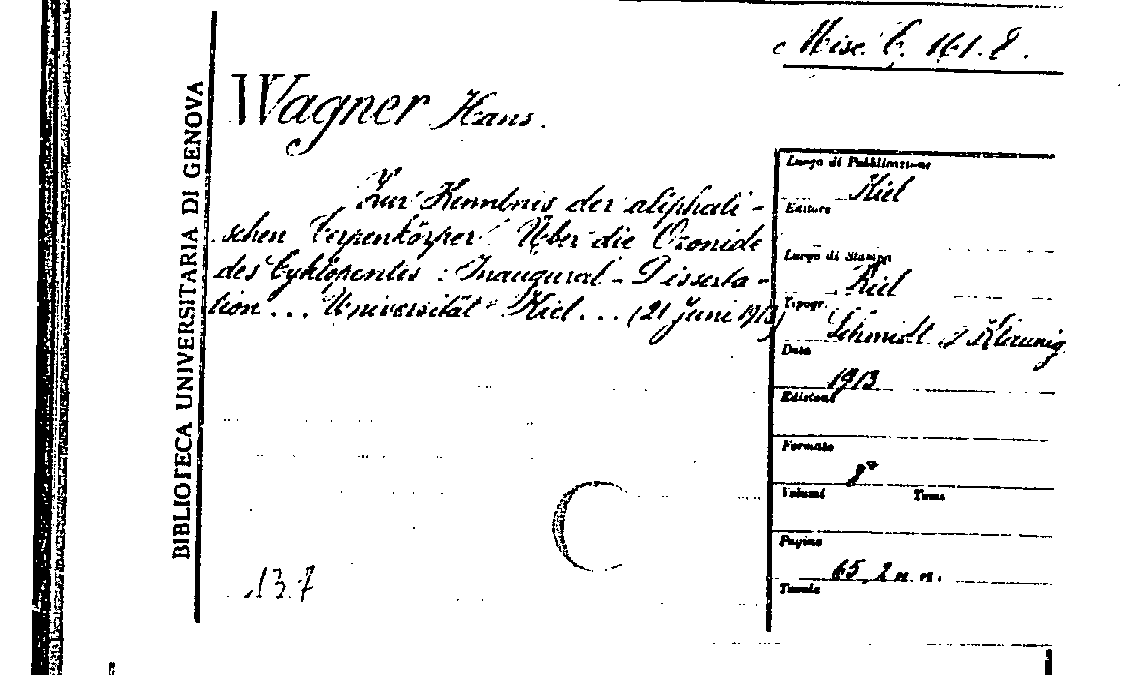 Misc. C. 161. 8.
BIBLIOTECA UNIVERSITARIA DI GENOVA
Wagner Hans.
Zur Kenntnis der aliphati-
schen Terpenkörper. Über die Ozonide
des Cyklopentes : Inaugural - Disserta-
tion ... Universität Kiel ... (21 Juni 1913)
Luogo di Pubblicazione
Kiel
Editore
Luogo di Stampa
Kiel
Tipogr.
Schmidt & Klaunig
Data
1913
Edizione
Formato
8°
Volumi Tomi
Pagine
65, 2 n. n.
Tavole
137